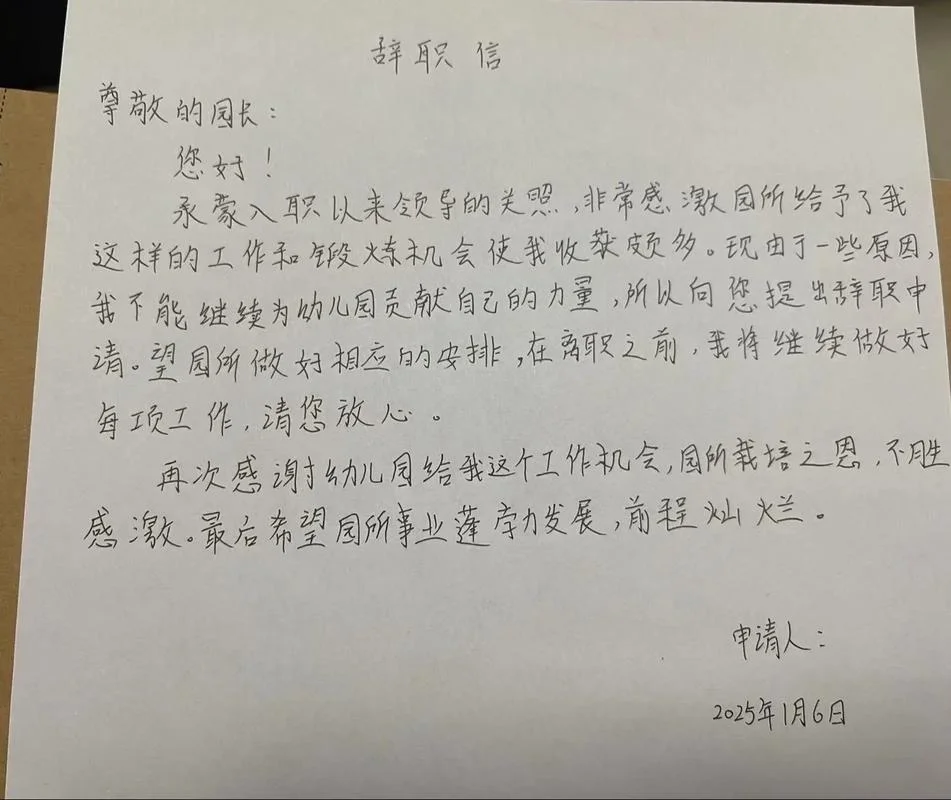 辞职信
尊敬的园长：
您好！
承蒙入职以来领导的关照，非常感激园所给予了我
这样的工作和锻炼机会使我收获颇多。现由于一些原因，
我不能继续为幼儿园贡献自己的力量，所以向您提出辞职申
请。望园所做好相应的安排，在离职之前，我将继续做好
每项工作，请您放心。
再次感谢幼儿园给我这个工作机会，园所栽培之恩，不胜
感激。最后希望园所事业蓬勃发展，前程灿烂。
申请人：
2025年1月6日